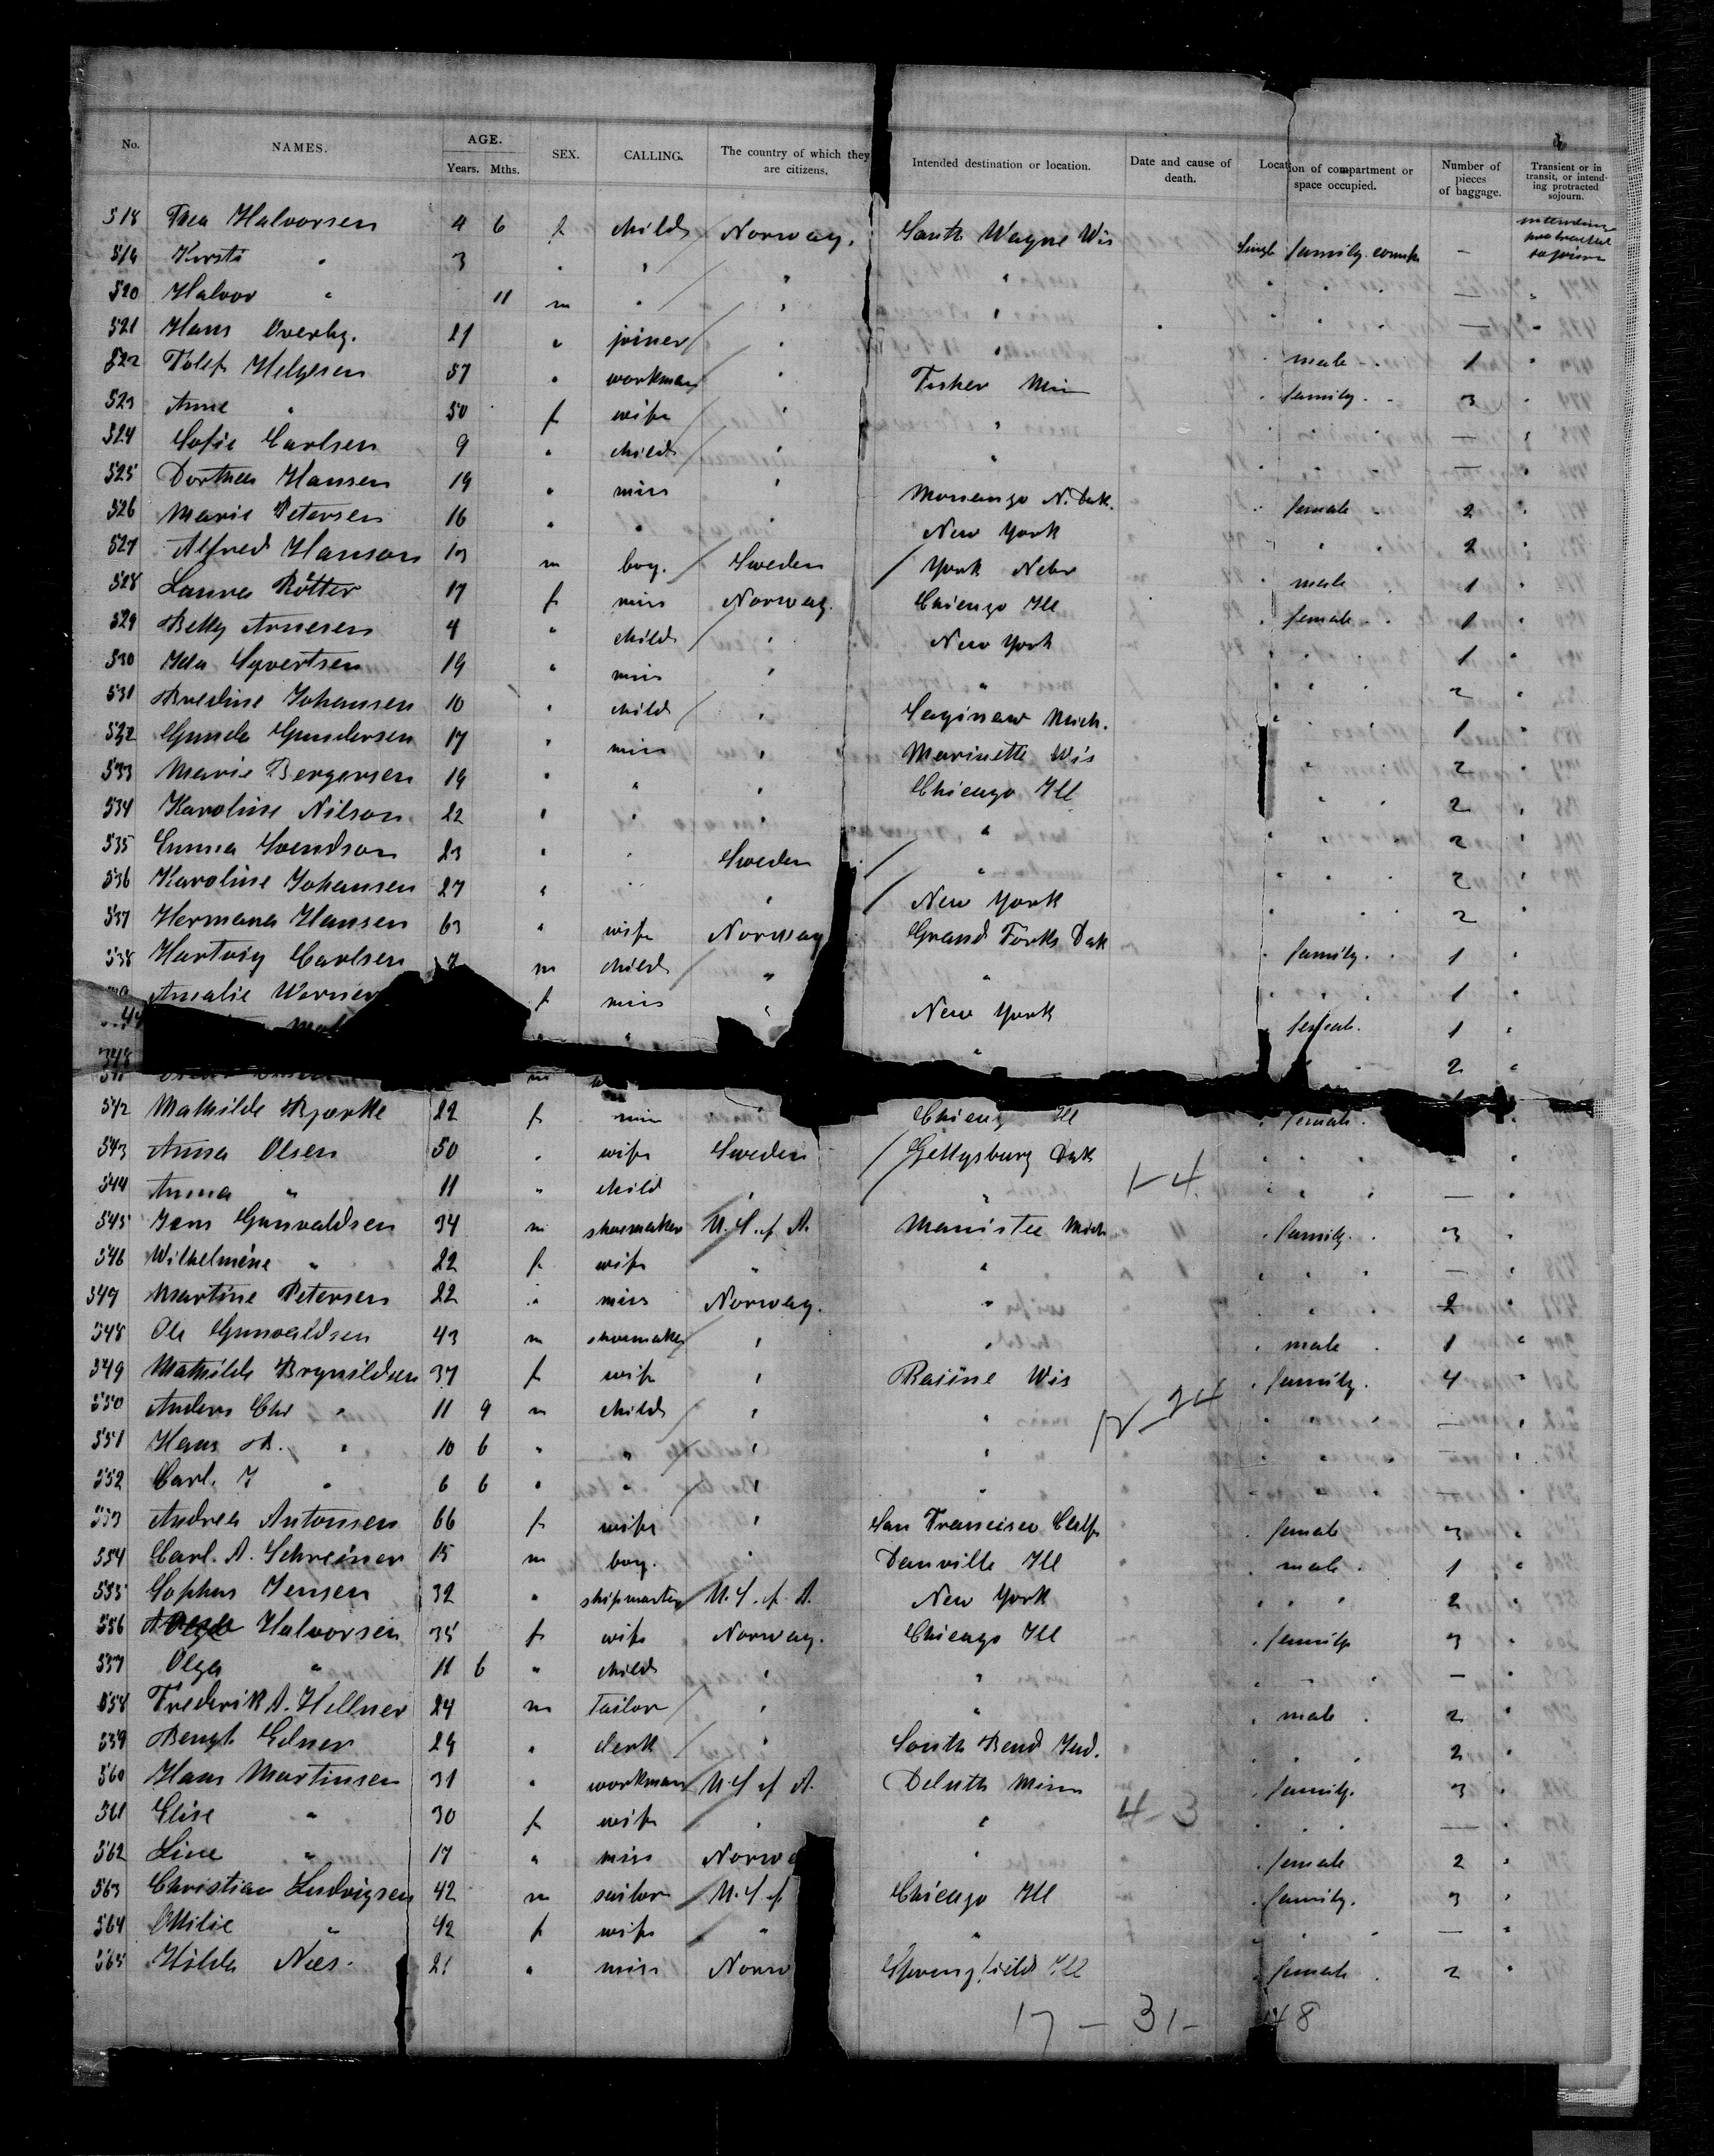 No. NAMES. AGE. Years. Mths. SEX. CALLING. The country of which they are citizens. Intended destination or location. Date and cause of death. Location of compartment or space occupied. Number of pieces of baggage. Transient or in transit, or intending protracted sojourn.
518 Thea Halvorsen 4 6 f child Norway. South Wayne Wis Single family. compt — intending protracted sojourn
519 Kirsti " 3 " " " " " " " —
520 Halvor " 11 m " " " " " " — "
521 Hans Overby. 21 " joiner " " " male 1 "
522 Tolef Helgesen 57 " workman " Fisher Min " family. " 3 "
523 Anne " 50 f wife " " " " " — "
524 Sofie Carlsen 9 " child " " " " " — "
525 Dorthea Hansen 19 " miss " Monango N. Dak. " female " 2 "
526 Marie Petersen 16 " " " New York " " " 2 "
527 Alfred Hanson 13 m boy. Sweden York Nebr " male 1 "
528 Laura Rötter 17 f miss Norway. Chicago Ill " female " 1 "
529 Betty Arnesen 4 " child " New York " " " 1 "
530 Ida Syvertsen 19 " miss " " " " " 2 "
531 Bredine Johansen 10 " child " Saginaw Mich. " " 1 "
532 Gunda Gundersen 17 " miss " Marinette Wis " " 2 "
533 Marie Bergersen 19 " " " Chicago Ill " " 2 "
534 Karoline Nilson 22 " " " " " " " 2 "
535 Emma Svendson 23 " " Sweden " " " " 2 "
536 Karoline Johansen 27 " " " New York " " 2 "
537 Hermana Hansen 63 " wife Norway Grand Forks Dak " family. " 1 "
538 Hartvig Carlsen 7 m child " " " " " 1 "
Amalie Werner f miss " New York " female. 1 "
" " " 2 "
m
542 Mathilde Bjerke 22 f miss " Chicag Ill " female. "
543 Anna Olsen 50 " wife Sweden Gettysburg Dak " " " "
544 Anna " 11 " child " " 1-4 " " " — "
545 Jens Gunvaldsen 34 m shoemaker U.S. of A. Manistee Mich " family. " 3 "
546 Wilhelmine " 22 f wife " " " " " — "
547 Martine Petersen 22 " miss Norway. " " " " 2 "
548 Ole Gunvaldsen 43 m shoemaker " " " male " 1 "
549 Mathilde Brynildsen 37 f wife " Raiine Wis " family. 4 "
550 Anders Chr " 11 9 m child " " " " " — "
551 Hans A. " 10 6 " " " " " " " — "
552 Carl. J " 6 6 " " " " " " " — "
553 Andrea Antonsen 66 f wife " San Francisco Calf " female 3 "
554 Carl. A. Schreiner 15 m boy. " Danville Ill " male " 1 "
555 Sophus Jensen 32 " shipmaster U.S. of A. New York " " " 2 "
556 Halvorsen 35 f wife Norway. Chicago Ill " family 3 "
557 Olga " 11 6 " child " " " " " — "
558 Frederik A. Hellner 24 m Tailor " " " male " 2 "
559 Bengt Edner 29 " clerk " South Bend Ind. " " " 2 "
560 Hans Martinsen 31 " workman U.S of A. Deluth Minn " family. 3 "
561 Elise " 30 f wife " " 4-3 " " " — "
562 Line " 17 " miss Norwa " " female 2 "
563 Christian Ludvigsen 42 m sailor U.S of Chicago Ill " family. 3 "
564 Ottilie " 42 f wife " " " " " — "
565 Hilda Næs. 21 " miss Norw Springfield Ill " female " 2 "
17 - 31 - 48